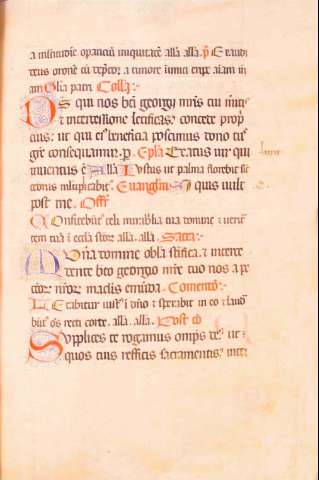 a multitudine operantiu iniquitate alla alla. p̄ Exaudi
deus orone cu depcor a timore inimici eripe aīam m
am Gl'ia patri Colla:·
Ds qui nos bti georgii mris tui mitis
et intercessione letificas: concede propi
cius: ut qui eius beneficia poscimus dono tue
gre consequamur. p. Ep'la Beatus uir qui
inuentus ē Alla Iustus ut palma florebit sic
cedrus multiplicabit. Euangliu Si quis uult
post me. Off'
Confitebut' celi mirabilia tua domine et uerit
tem tua i eccla stor. alla. alla. Sacra:·
Munera domine obla stifica: et interce
dente beo georgio mre tuo nos a pc
ctor nror maclis emuda. Comunio:·
Letabitur iust' i dno et sperabit in eo et laud
but' os recti corde. alla. alla. Post co
Supplices te rogamus omps ds ut
quos tuis reficis sacramentis. inter